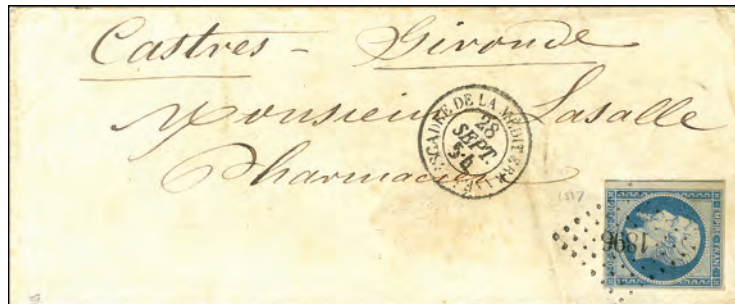 Castres - Gironde
Monsieur Lasalle
Pharmacien
ESCADRE DE LA MEDITERRANEE
28
SEPT.
54
1896
EMPIRE FRANC